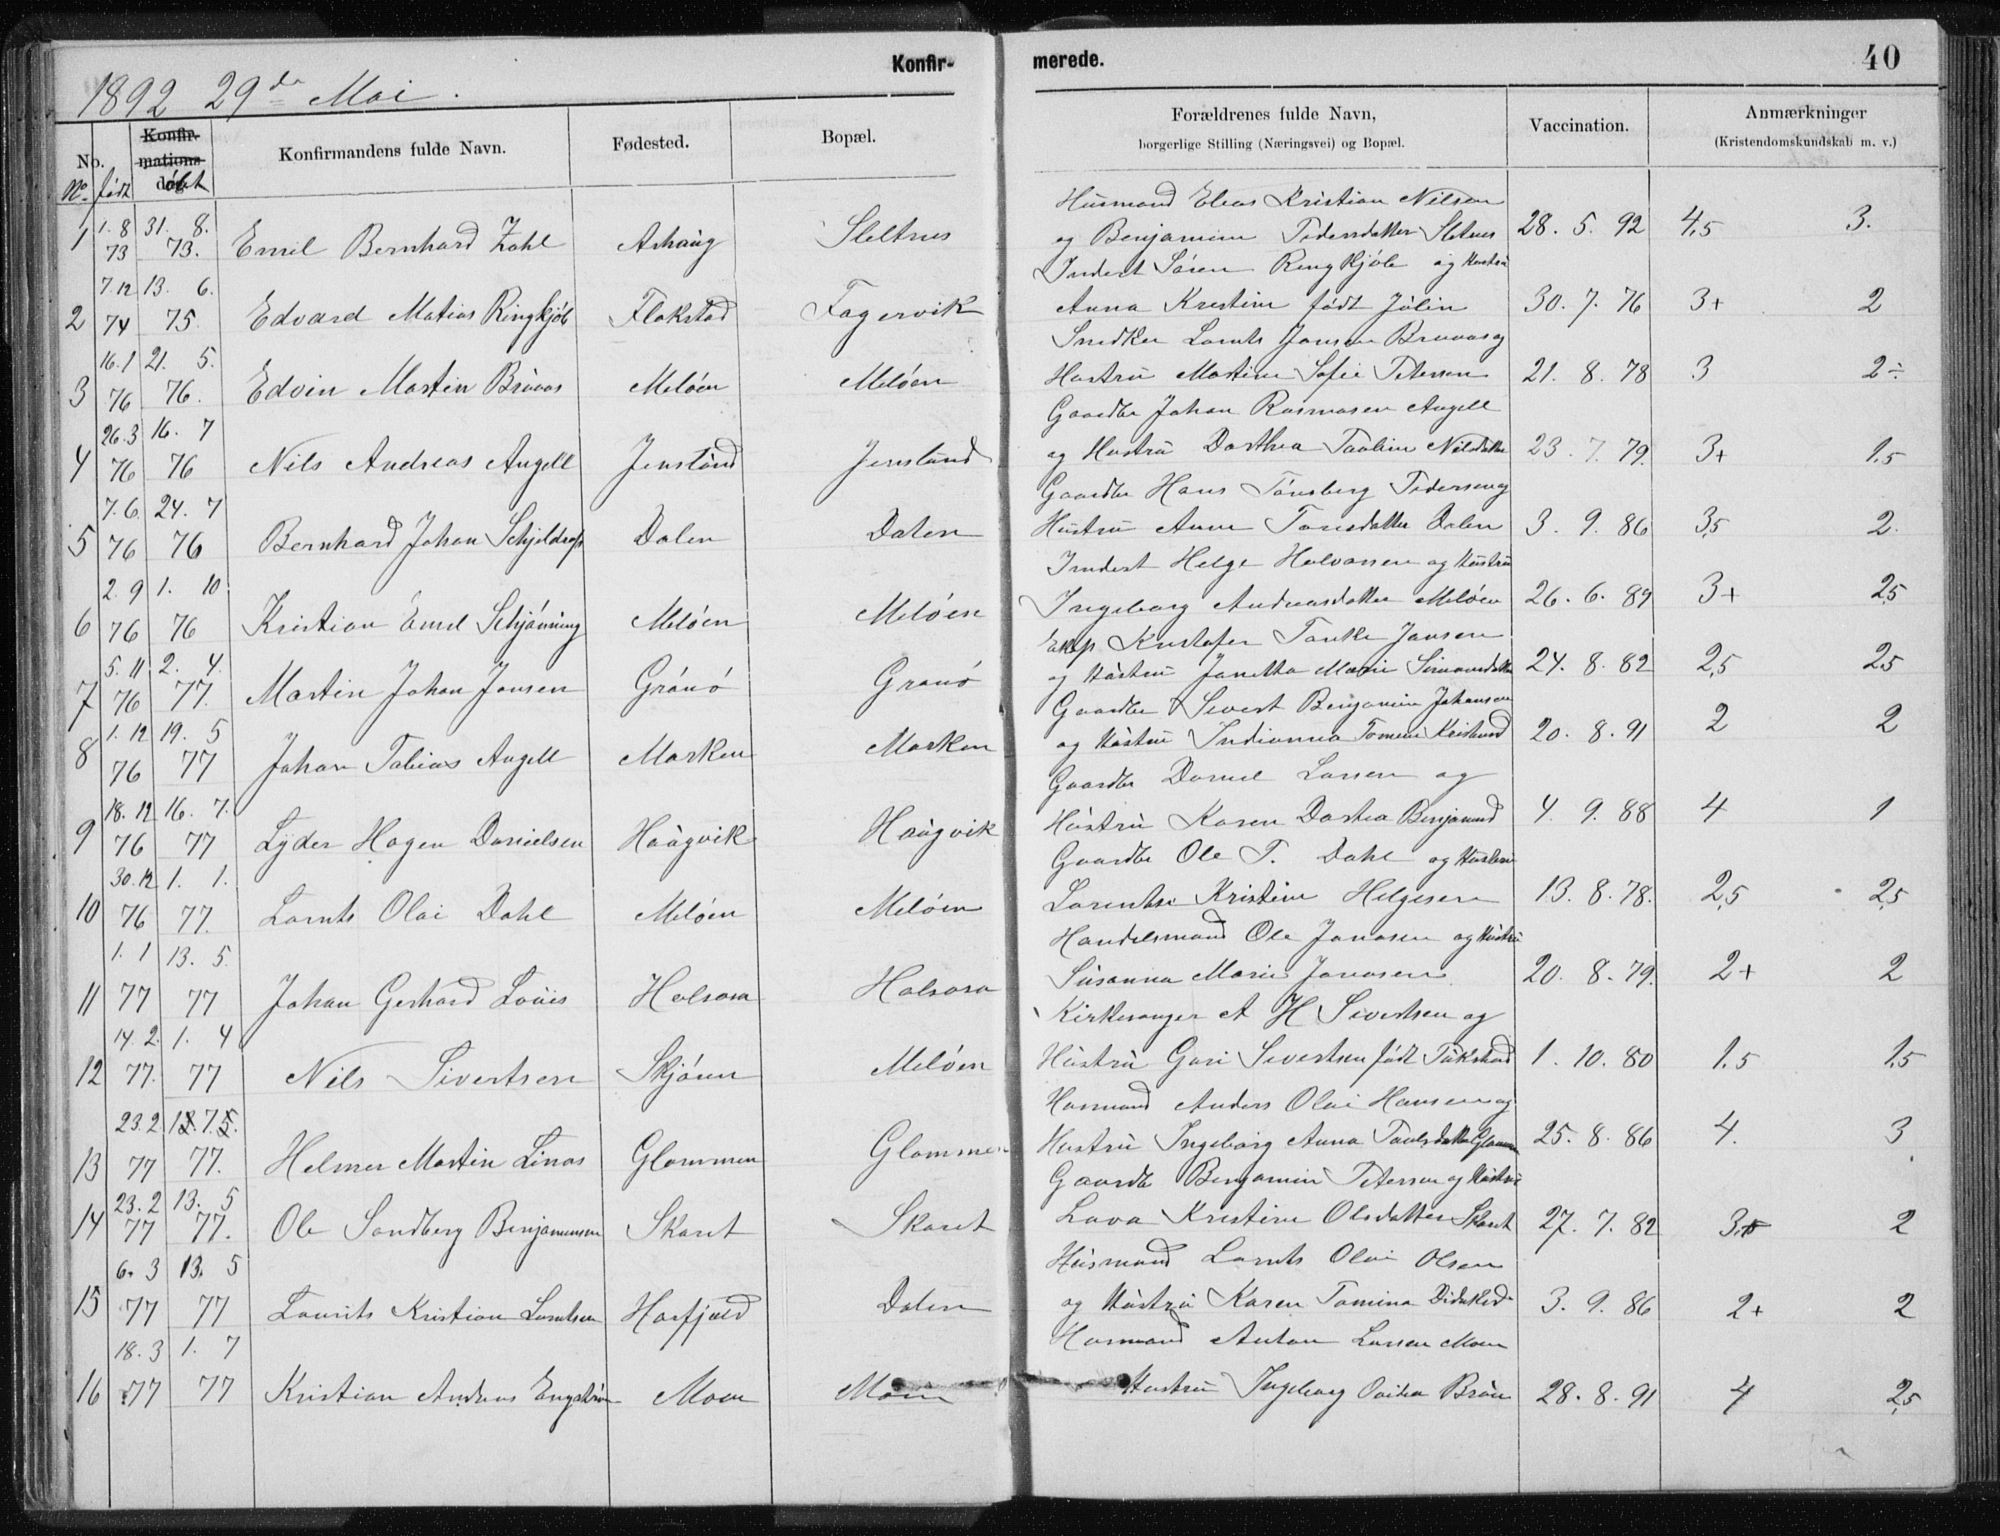 Konfir-
merede.
40
1892 29de Mai.
No. Konfirmations dag Konfirmandens fulde Navn. Fødested. Bopæl.
Forældrenes fulde Navn,
borgerlige Stilling (Næringsvei) og Bopæl.
Vaccination.
Anmærkninger
(Kristendomskundskab m. v.)
No. født døbt
Husmand Elias Kristian Nilsen
1 1.8 73 31. 8. 73. Emil Bernhard Zahl Ashaug Sletnes og Benjamine Pedersdatter Sletnes 28. 5. 92 4,5 3.
Inderst Sören Ringkjöb og Hustru
2 7.12 74 13. 6. 75. Edvard Matias Ringkjöb Flakstad Fagervik Anna Kristine födt Jülin 30. 7. 76 3+ 2
Snedker Lornts Jansen Bruaas og
3 16.1 76 21. 5. 76. Edvin Martin Bruaas Melöen Melöen Hustru Martine Sofie Petersen 21. 8. 78 3 2÷
Gaardbr Johan Rasmusen Angell
4 26.3 76 16. 7 76 Nils Andreas Angell Jenslund Jenslund og Hustru Dorthea Pauline Nilsdatter 23. 7. 79. 3+ 1,5
Gaardbr Hans Tönsberg Pedersen og
5 7.6. 76 24. 7 76 Bernhard Johan Schjeldrup Dalen Dalen Hustru Anne Dalen 3. 9. 86 3,5 2.
Inderst Helge Halvorsen og Hustru
6 2.9 76 1. 10 76 Kristian Emil Schjönning Melöen Melöen Ingeborg Andreasdatter Melöen 26. 6. 89 3+ 2,5
Kristofer Tanke Jansen
7 5.11. 76 2. 4. 77. Martin Johan Jansen Grönö Grönö og Hustru Janetta Marie Simonsdatter 24. 8. 82 2,5 2,5
Gaardbr Sivert Benjamin Johansen
8 1.12 76 19. 5 77 Johan Tobias Angell Marken Marken og Hustru Indianna 20. 8. 91 2 2
Gaardbr Daniel Larsen og
9 18.12 76 16. 7. 77 Lyder Hagen Danielsen Haagvik Haagvik Hustru Karen Dortea Benjamind 4. 9. 88 4 1
Gaardbr Ole T. Dahl og Hustru
10 30.12 76 1. 1. 77. Lornts Olai Dahl Melöen Melöen Lorentse Kristine Helgesen 13. 8. 78. 2,5 2,5
Handelsmand Ole Jonasen og Hustru
11 1.1 77 13. 5. 77 Johan Gerhard Louis Halsosa Halsosa Susanna Marie Jonasen 20. 8. 79. 2+ 2
Kirkesanger A H Sivertsen og
12 14.2. 77. 1. 4 77 Nils Sivertsen Skjönn Melöen Hustru Guri Sivertsen födt 1. 10. 80 1,5 1,5
Husmand Anders Olai Hansen og
13 23.2 77 7. 77. Helmer Martin Linas Glommen Glommen Hustru Ingeborg Anna Paulsdatter Glommen 25. 8. 86 4. 3
Gaardbr Benjamin Petersen og Hustru
14 23.2 77 13. 5 77. Ole Sandberg Benjaminsen Skaret Skaret Lava Kristine Olsdatter Skaret 27. 7. 82 3+ 2
Husmand Lornts Olai Olsen
15 6.3 77 13. 5 77 Laurits Kristian Lorntsen Harfjeld Dalen og Hustru Karen Tomina 3. 9. 86 2+ 2
Husmand Anton Larsen Moen
16 18.3 77 1. 7 77 Kristian Andreas Engström Moen Moen Hustru Ingeborg 28. 8. 91 4 2,5